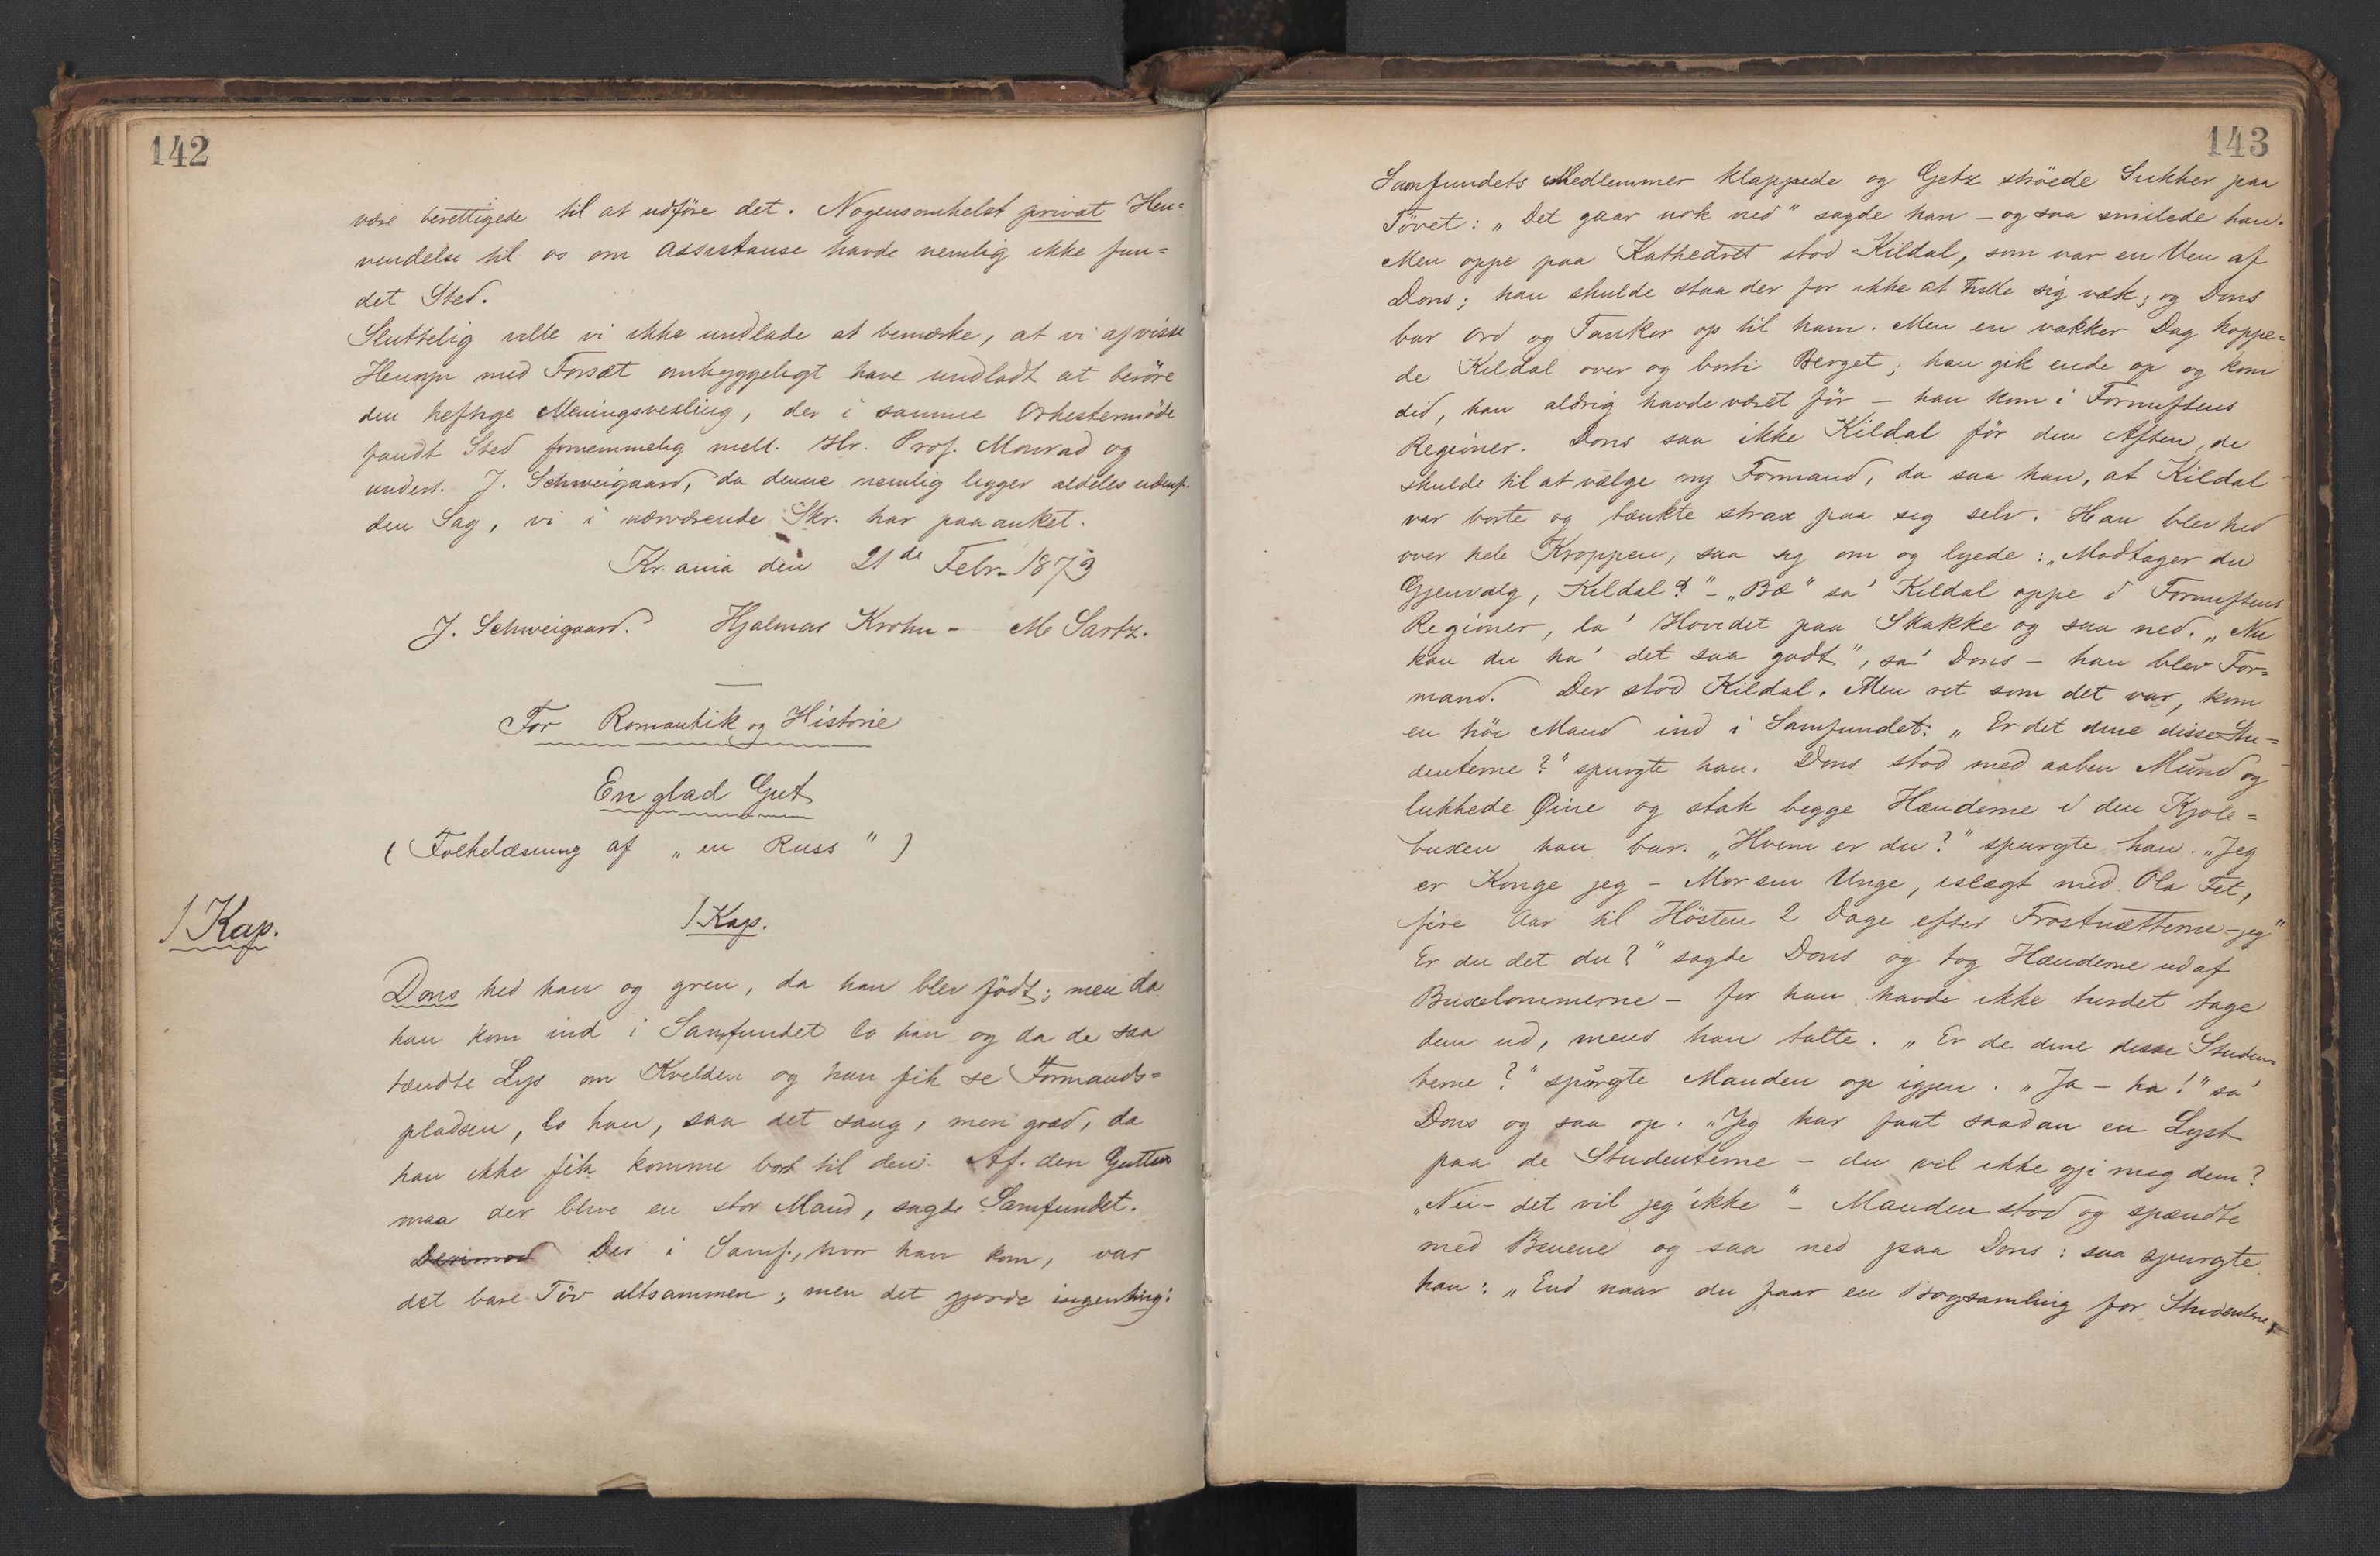 142
være berettigede til at udføre det. Nogensomhelst privat Hen=
vendelse til os om Assistanse havde nemlig ikke fun=
det Sted.
Sluttelig ville vi ikke undlade at bemærke, at vi af visse
Hensyn med Forsæt omhyggeligt have undladt at berøre
den heftige Meningsvexling, der i samme Orkestermøde
fandt Sted fornemmelig mell. Hr. Prof. Monrad og
undert. J. Schweigaard, da denne nemlig ligger aldeles udenf.
den Sag, vi i nærværende Skr. har paaanket.
Kr.ania den 21de Febr. 1873
J. Schweigaard. Hjalmar Krohn - M Sartz.
For Romantik og Historie
En glad Gut
( Folkelæsning af „en Russ" )
1 Kap.
1 Kap.
Dons hed han og gren, da han blev født; men da
han kom ind i Samfundet lo han og da de saa
tændte Lys om Kvelden og han fik se Formands=
pladsen, lo han, saa det sang, men græd, da
han ikke fik komme bort til den. Af den Gutten
maa der blive en stor Mand, sagde Samfundet.
Derimod Der i Samf., hvor han kom, var
det bare Töv altsammen; men det gjorde ingenting:
143
Samfundets Medlemmer klappede og Getz ströede Sukker paa
Tövet: „Det gaar nok ned" sagde han - og saa smilede han.
Men oppe paa Kathedret stod Kildal, som var en Ven af
Dons; han skulde staa der for ikke at trille sig væk; og Dons
bar Ord og Tanker op til ham. Men en vakker Dag hoppe=
de Kildal over og borti Berget; han gik ende op og kom
did, han aldrig havde været för - han kom i Fornuftens
Regioner. Dons saa ikke Kildal för den Aften, de
skulde til at vælge ny Formand, da saa han, at Kildal
var borte og tænkte strax paa sig selv. Han blev hed
over hele Kroppen, saa sig om og lyede: „Modtager du
Gjenvalg, Kildal?" - „Bæ" sa' Kildal oppe i Fornuftens
Regioner, la' Hovedet paa Skakke og saa ned. „Nu
kan du ha' det saa godt", sa' Dons - han blev For=
mand. Der stod Kildal. Men ret som det var, kom
en höi Mand ind i Samfundet: „Er det dine disse Stu=
denterne?" spurgte han. Dons stod med aaben Mund og
lukkede Øine og stak begge Hænderne i den Kjole=
buxen han bar. „Hvem er du?" spurgte han. „Jeg
er Konge jeg - Mor sin Unge, islægt med Ola Fet,
fire Aar til Hösten 2 Dage efter Frostnætterne - jeg"
Er du det du?" sagde Dons og tog Hænderne ud af
Buxelommerne - for han havde ikke turdet tage
dem ud, mens han talte. „Er de dine disse Studen=
terne?" spurgte Manden op igjen. „Ja - ha!" sa'
Dons og saa op. „Jeg har faat saadan en Lyst
paa de Studenterne - du vil ikke gji meg dem?
„Nei - det vil jeg ikke" - Manden stod og spændte
med Benene og saa ned paa Dons: saa spurgte
han: „End naar du faar en Bogsamling for Studenterne,